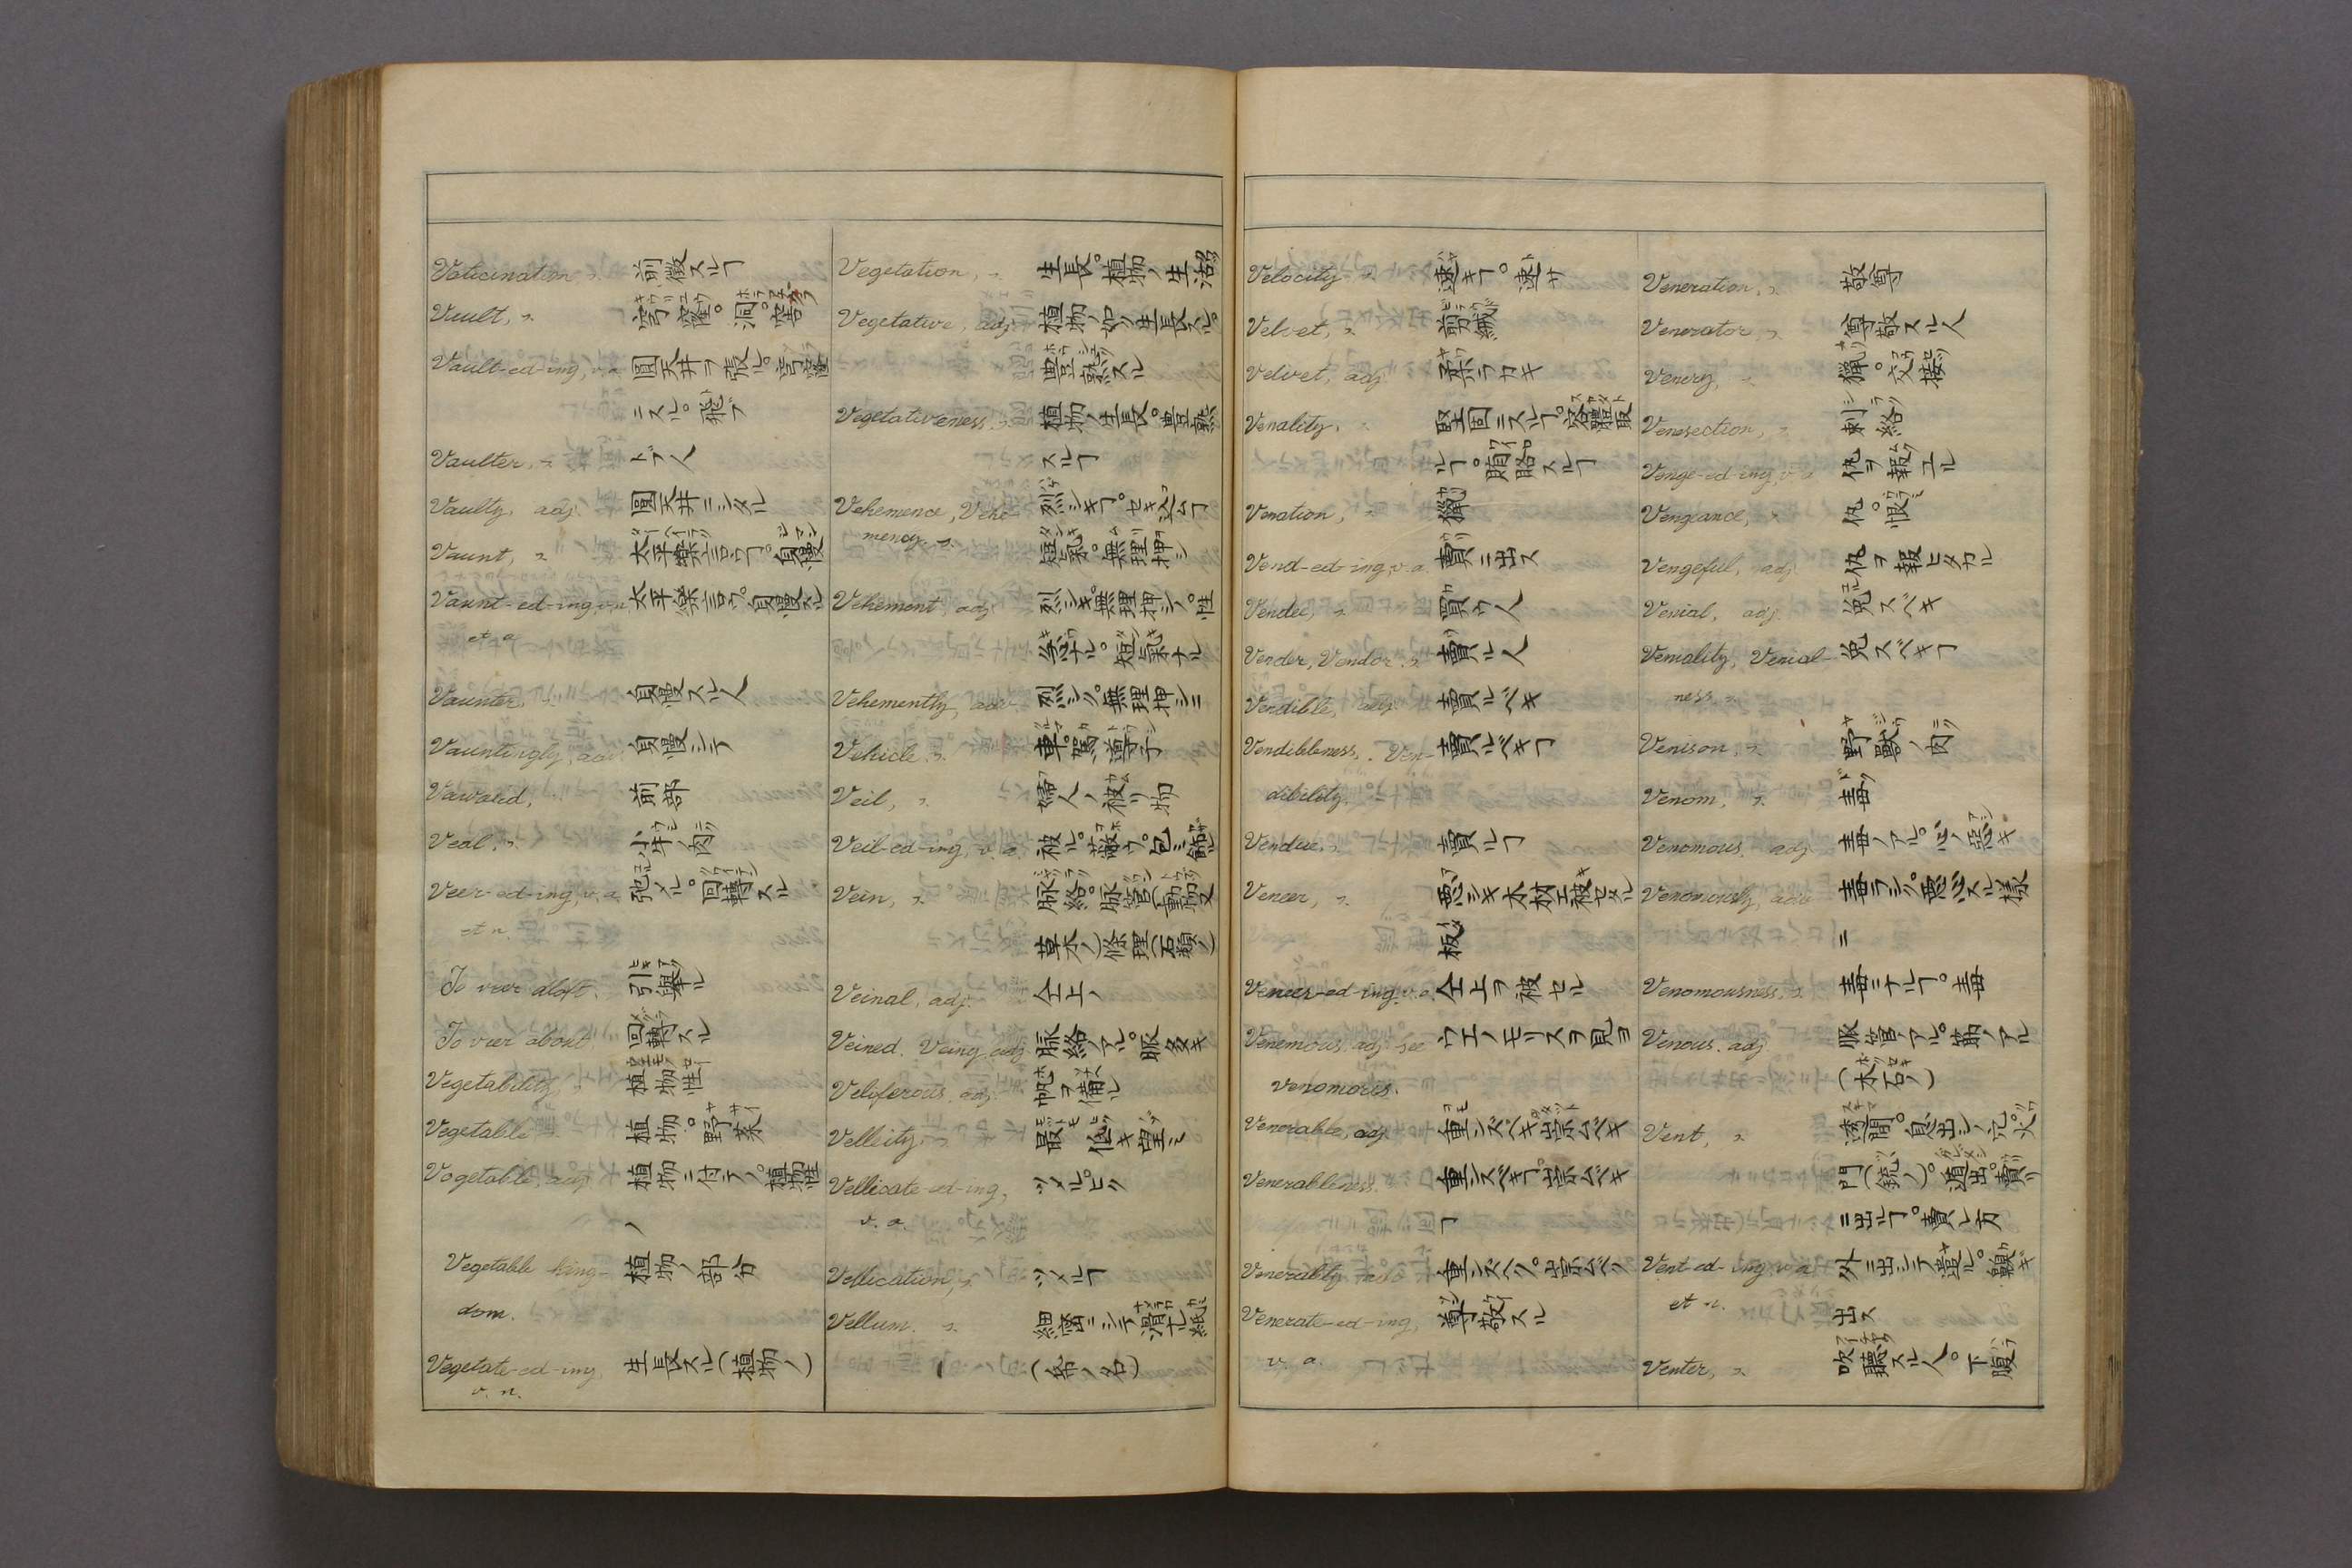 Vaticination, s. 前徴スルヿ
Vault, s. 穹窿。洞。窖
Vault-ed-ing, v.a. 圓天井ヲ張ル。穹窿
ニスル。飛ブ
Vaulter, s. トブ人
Vaulty, adj. 圓天井ニシタル
Vaunt, s. 太平樂言ウヿ。自慢
Vaunt-ed-ing, v.n. 太平樂言ウ。自慢スル
et a.
Vaunter, s. 自慢スル人
Vauntingly, adv. 自慢シテ
Vaward, 前部
Veal, s. 小牛ノ肉
Veer-ed-ing, v.a. 弛メル。回轉スル
et n.
To veer aloft. 引舉ル
To veer about 回轉スル
Vegetability, s. 植物性
Vegetable s. 植物。野菜
Vegetable, adj. 植物ニ付テノ。植物性
ノ
Vegetable king- 植物ノ部分
dom.
Vegetate-ed-ing, 生長スル(植物ノ)
v. n.
Vegetation, s. 生長。植物ノ生活
Vegetative, adj. 植物ノ如ク生長スル。
豊熟スル
Vegetativeness, s. 植物ノ生長。豊熟
スルヿ
Vehemence, Vehe- 烈シキヿ。セキ込ムヿ
mency. s. 短氣。無理押シ
Vehement, adj. 烈シキ。無理押シノ。性
急ナル。短氣ナル
Vehemently, adv. 烈シク。無理押シニ
Vehicle, s. 車。駕。導子
Veil, s. 婦人ノ被リ物
Veil-ed-ing, v.a. 被ル。蔽ウ。包ミ飾ル
Vein, s. 脉絡。脉管(動物又
草木ノ)條理(石類ノ)
Veinal, adj. 仝上ノ
Veined. Veiny, adj. 脉絡ノアル。脈多キ
Veliferous, adj. 帆ヲ備ル
Velleity, s. 最モ低キ望ミ
Vellicate-ed-ing, ツメル。ヒク
v. a.
Vellication, s. ツメルヿ
Vellum. s. 細密ニシテ滑ナル紙
(希ノ名)
Velocity s. 速キヿ。速サ
Velvet, s. 剪絨
Velvet, adj. 柔ラカキ
Venality, s. 堅固ニスルヿ。容體取
ルヿ。賄賂スルヿ
Venation, s. 獵
Vend-ed-ing, v.a. 賣ニ出ス
Vendee, s. 買ウ人
Vender, Vendor. s. 賣ル人
Vendible, adj. 賣ルベキ
Vendibleness, Ven- 賣ルベキヿ
dibility.
Vendue, s. 賣ルヿ
Veneer, s. 悪シキ木材エ被セル
板
Veneer-ed-ing, v.a. 仝上ヲ被セル
Venemous, adj. see ウエノモリスヲ見ヨ
venomous.
Venerable, adj. 重ンズベキ。崇ムベキ
Venerableness 重ンズベキヿ。崇ムベキ
ヿ
Venerability adv. 重ンズベク。崇ムベク
Venerate-ed-ing, 尊敬スル
v. a.
Veneration, s. 敬尊
Venerator, s. 尊敬スル人
Venery, s. 獵。交接
Venesection, s. 刺絡
Venge-ed-ing, v.a. 仇ヲ報ユル
Vengeance, s. 仇。恨
Vengeful, adj. 仇ヲ報ヒタガル
Venial, adj. 免スベキ
Veniality, Venial- 免スベキヿ
ness. s.
Venison, s. 野獸ノ肉
Venom, s. 毒
Venomous, adj. 毒ノアル。心ノ惡キ
Venomously, adv. 毒ラシク。悪心スル様
ニ
Venomousness, s. 毒ニナルヿ。毒
Venous. adj. 脈管ノアル。筋ノアル
(木石ノ)
Vent, s. 透間。息出シノ穴。火
門(銃ノ)。遁出。賣リ
ニ出スヿ。賣レ方
Vent-ed-ing, v.a. 外ニ出シテ遣ル。嗅ギ
et n. 出ス
Venter, s. 吹聽スル人。下腹